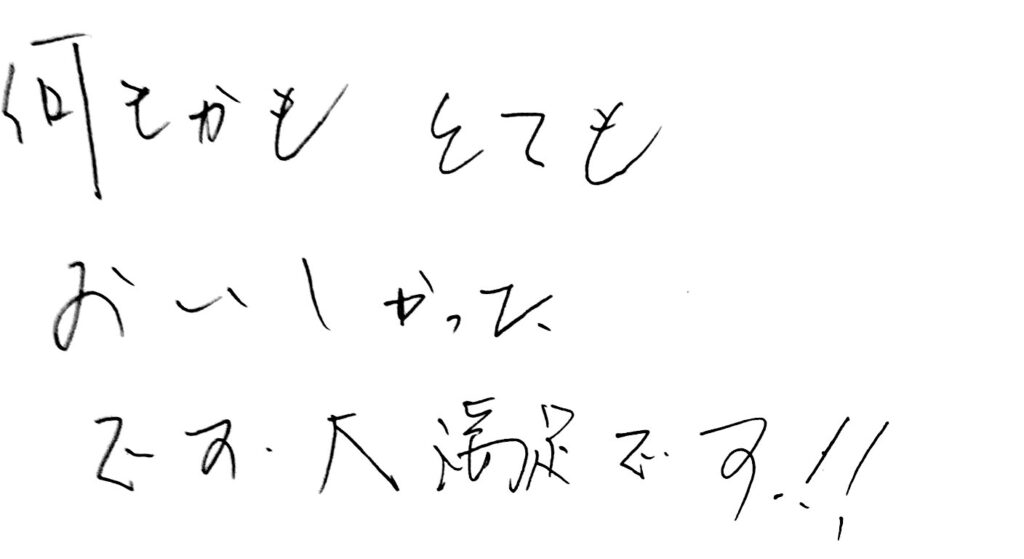 何もかもとても
おいしかった
です.大満足です.!!